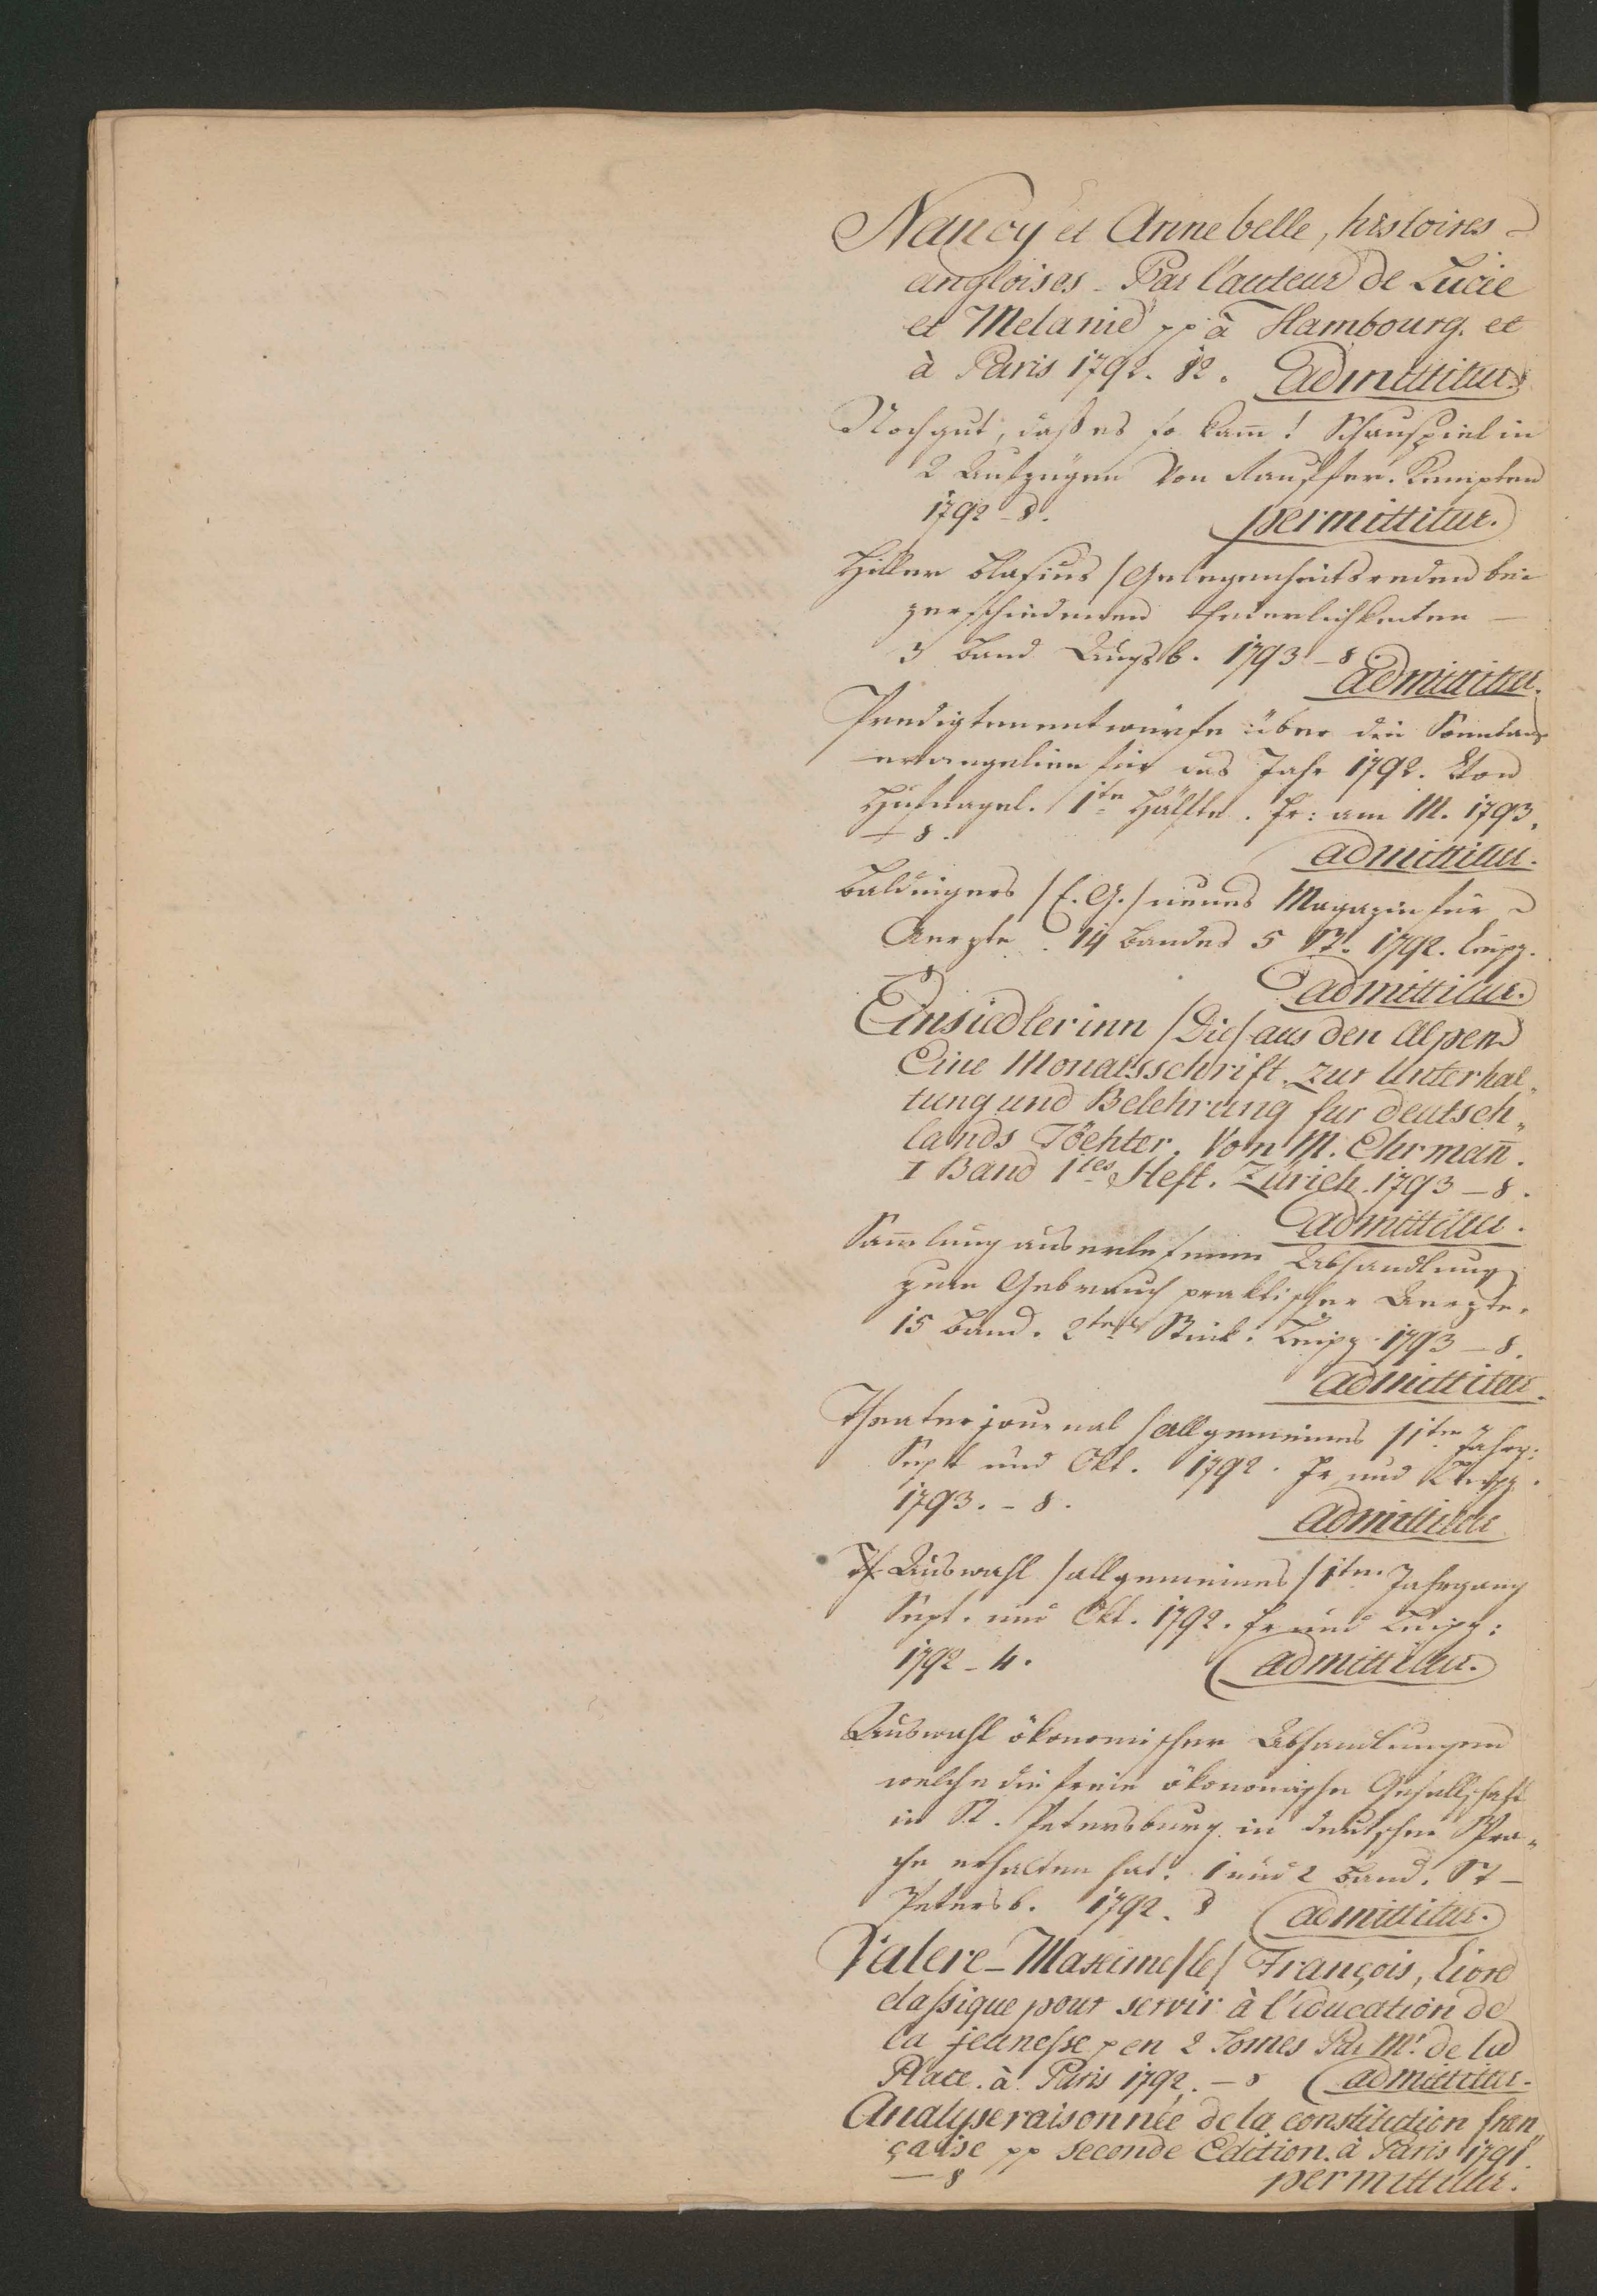 Nancy et Annebelle, histoires
angloises - Par l'auteur de Lucie
et Melanie pp à Hambourg. et
à Paris 1792. 12. admittitur.
Noch gut, daß es so kam̄! Schauspiel in
2 Aufzügen von Kauffer. Kempten
1792 - 8. permittitur.
Hiller Blasius /Gelegenheitsreden bei
verschiedenen Feierlichkeiten -
3 Band Augsb. 1793 - 8
admittitur.
Predigtenentwürfe über die Sonntags
evangelien für das Jahr 1792. Von
Hufnagel. 1te Hälfte. Fr: am M. 1793.
- 8.
admittitur.
Baldingers /E. G./ neues Magazin für
Aerzte. 14 Bandes 5 St. 1792. Leipz.
- 8 admittitur.
Einsiedlerinn /Die/ aus den Alpen
Eine Monatsschrift zur Unterhal„
tung und Belehrung fur deutsch„
lands Töchter. Von M. Ehrman̄.
I Band 1tes Heft. Zürich. 1793 - 8.
admittitur.
Sam̄lung auserlesener Abhandlung
zum Gebrauch praktischer Aerzte.
15 Band. 2tes Stück. Leipz. 1793 - 8.
admittitur.
Theaterjournal /allgemeines/ 1ter Jahrg:
Sept und Okt. 1792. Fr und Leipz.
1793. - 8.
admittitur
Auswahl /allgemeines/ 1ter Jahrgang
Sept. und Okt. 1792. Fr und Leipz:
1792 - 4. admittitur.
Auswahl ökonomischer Abhandlungen
welche die freie ökonomische Gesellschaft
in St. Petersburg in deutscher Spra„
che erhalten hat. 1 und 2 Band. St -
Petersb. 1792. 8 admittitur.
Valere-Maxime /le/ François, Livre
classique pour servir à l'éducation de
la jeunesse p en 2 Tomes Par Mr. de la
Place. à Paris 1792. - 8 admittitur.
Analyse raisonnée de la constitution fran„
çaise pp seconde Edition. à Paris 1791.
- 8 permittitur.